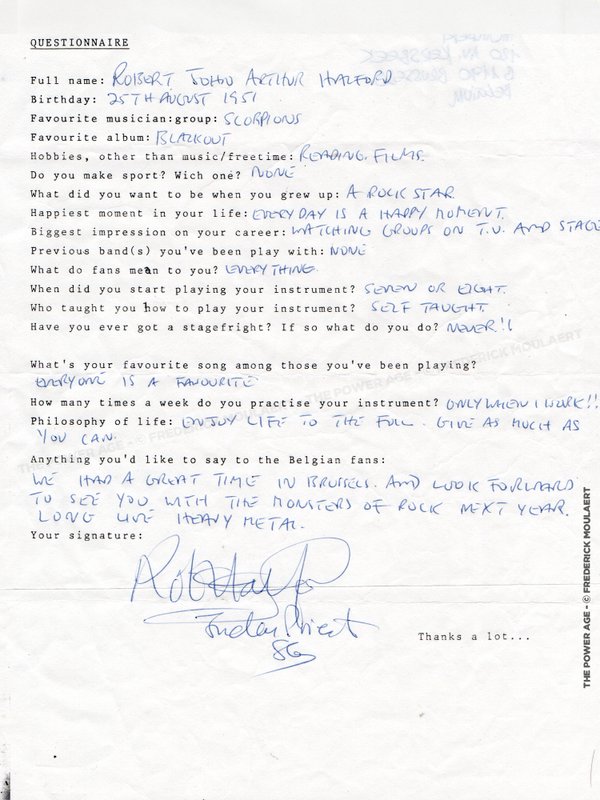 QUESTIONNAIRE
Full name: ROBERT JOHN ARTHUR HALFORD
Birthday: 25TH AUGUST 1951
Favourite musician:group: SCORPIONS
Favourite album: BLACKOUT
Hobbies, other than music/freetime: READING. FILMS.
Do you make sport? Wich one? NONE
What did you want to be when you grew up: A ROCK STAR.
Happiest moment in your life: EVERYDAY IS A HAPPY MOMENT.
Biggest impression on your career: WATCHING GROUPS ON T.V. AND STAGE
Previous band(s) you've been play with: NONE
What do fans mean to you? EVERYTHING.
When did you start playing your instrument? SEVEN OR EIGHT.
Who taught you how to play your instrument? SELF TAUGHT.
Have you ever got a stagefright? If so what do you do? NEVER!!
What's your favourite song among those you've been playing?
EVERYONE IS A FAVOURITE
How many times a week do you practise your instrument? ONLY WHEN I WORK!!
Philosophy of life: ENJOY LIFE TO THE FULL. GIVE AS MUCH AS
YOU CAN.
Anything you'd like to say to the Belgian fans:
WE HAD A GREAT TIME IN BRUSSELS. AND LOOK FORWARD
TO SEE YOU WITH THE MONSTERS OF ROCK NEXT YEAR.
LONG LIVE HEAVY METAL.
Your signature:
Rob Halford
Judas Priest
86
Thanks a lot...
THE POWER AGE - © FREDERICK MOULAERT
THE POWER AGE - © FREDERICK MOULAERT
THE POWER AGE - © FREDERICK MOULAERT